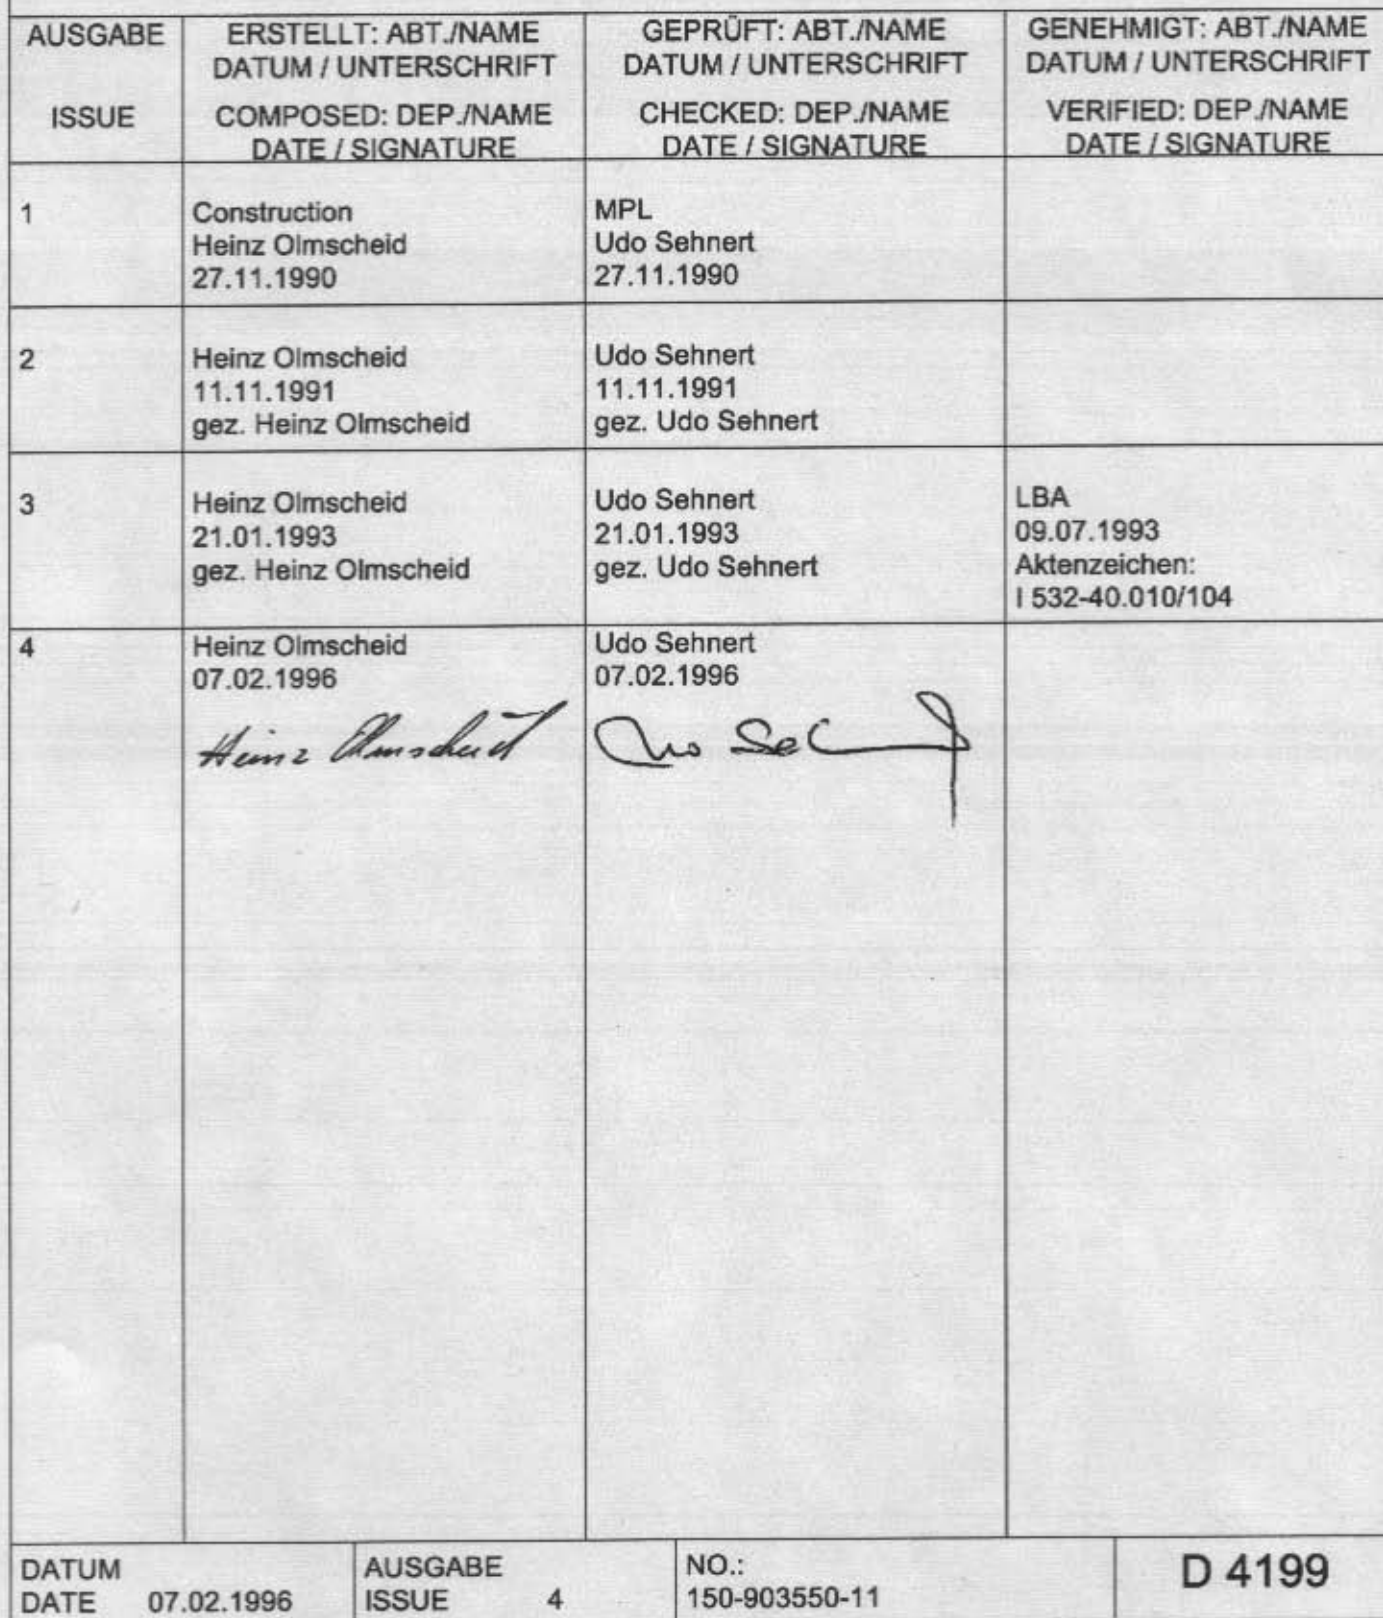 AUSGABE
ISSUE
ERSTELLT: ABT./NAME
DATUM / UNTERSCHRIFT
COMPOSED: DEP./NAME
DATE / SIGNATURE
GEPRÜFT: ABT./NAME
DATUM / UNTERSCHRIFT
CHECKED: DEP./NAME
DATE / SIGNATURE
GENEHMIGT: ABT./NAME
DATUM / UNTERSCHRIFT
VERIFIED: DEP./NAME
DATE / SIGNATURE
1
Construction
Heinz Olmscheid
27.11.1990
MPL
Udo Sehnert
27.11.1990
2
Heinz Olmscheid
11.11.1991
gez. Heinz Olmscheid
Udo Sehnert
11.11.1991
gez. Udo Sehnert
3
Heinz Olmscheid
21.01.1993
gez. Heinz Olmscheid
Udo Sehnert
21.01.1993
gez. Udo Sehnert
LBA
09.07.1993
Aktenzeichen:
I 532-40.010/104
4
Heinz Olmscheid
07.02.1996
Heinz Olmscheid
Udo Sehnert
07.02.1996
DATUM
DATE 07.02.1996
AUSGABE
ISSUE 4
NO.:
150-903550-11
D 4199